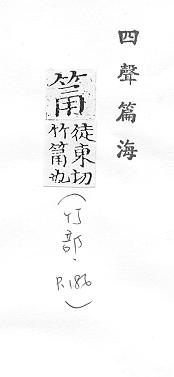 四聲篇海
筩
徒東切
竹筩也
(竹部. P.186)